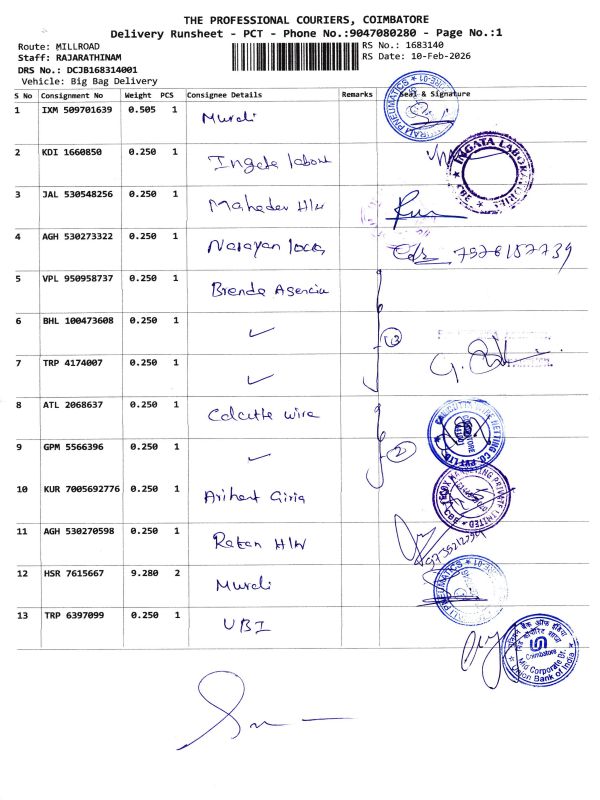 THE PROFESSIONAL COURIERS, COIMBATORE
Delivery Runsheet - PCT - Phone No.:9047080280 - Page No.:1
Route: MILLROAD
RS No.: 1683140
Staff: RAJARATHINAM
RS Date: 10-Feb-2026
DRS No.: DCJB168314001
Vehicle: Big Bag Delivery
S No Consignment No Weight PCS Consignee Details Remarks Seal & Signature
1 IXM 509701639 0.505 1 Murali
2 KDI 1660850 0.250 1 Ingata labour
INGATA LABORATORIES
CBE
3 JAL 530548256 0.250 1 Mahadev H/W
4 AGH 530273322 0.250 1 Narayan
5 VPL 950958737 0.250 1 Brenda Agencies
6 BHL 100473608 0.250 1 ✓
7 TRP 4174007 0.250 1 ✓
8 ATL 2068637 0.250 1 Calcutta wire
CALCUTTA WIRE NETTING CO. PVT LTD
9 GPM 5566396 0.250 1 ✓
2
10 KUR 7005692776 0.250 1 Arihant Giria
PRIVATE LIMITED
CBE
11 AGH 530270598 0.250 1 Ratan H/W
12 HSR 7615667 9.280 2 Murali
PNEUMATICS
13 TRP 6397099 0.250 1 UBI
यूनियन बैंक ऑफ इंडिया
Coimbatore
Mid Corporate Br.
Union Bank of India